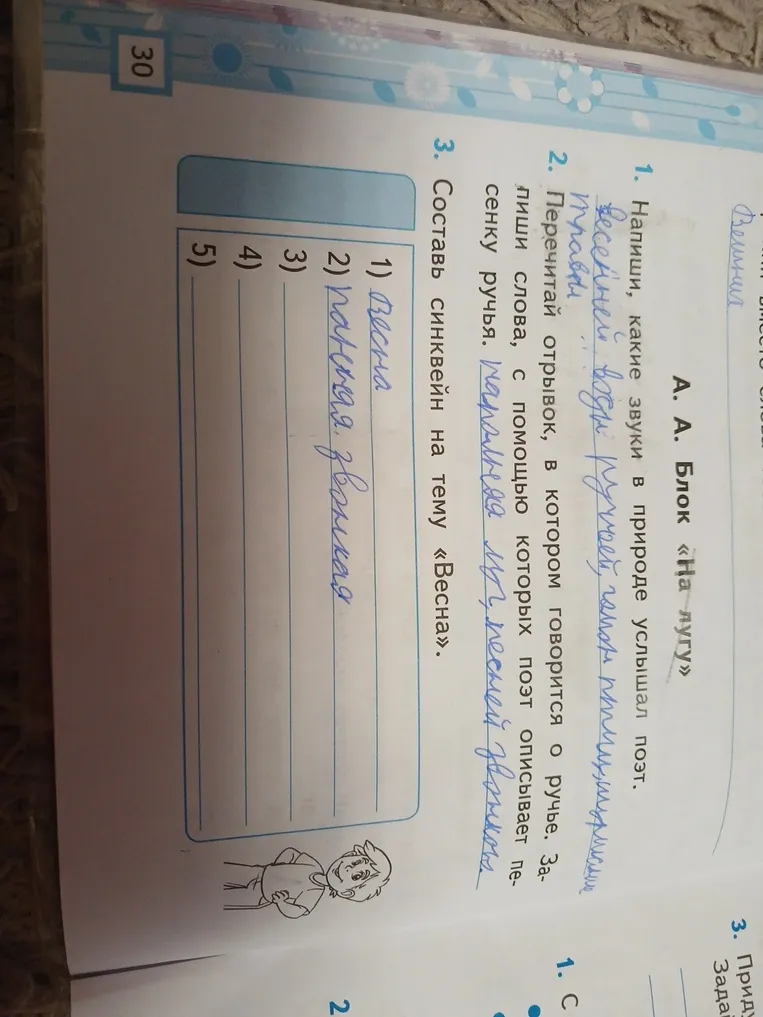 Вешния
А. А. Блок «На лугу»
1. Напиши, какие звуки в природе услышал поэт.
Весенней воды ручьей, гомон птиц,
травы
2. Перечитай отрывок, в котором говорится о ручье. За-
пиши слова, с помощью которых поэт описывает пе-
сенку ручья. луг, песней звонкой.
3. Составь синквейн на тему «Весна».
1) весна
2) звонкая
3)
4)
5)
30
3. Приду
Задай
1. С
2